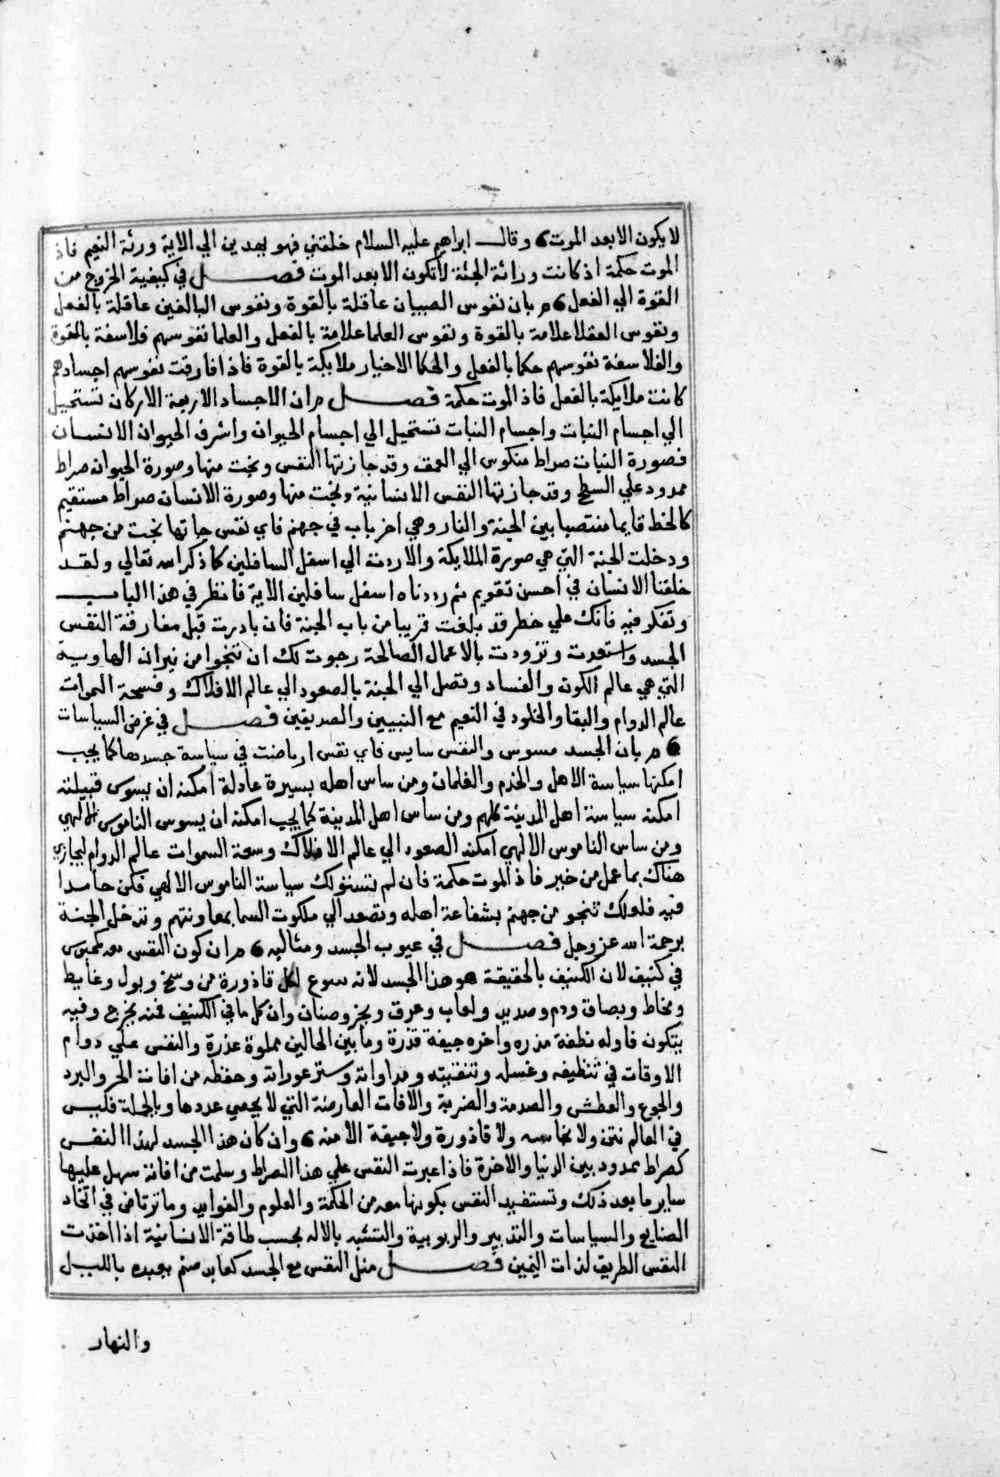 لا يكون الا بعد الموت 6 وقال ابراهيم عليه السلام خلقني فهو يهدين الي الاية ورثة النعيم فاذ
الموت حكمة اذ كانت وراثة الجنة لا تكون الا بعد الموت فصل في كيفية الخروج من
القوة الي الفعل 6 م بان نفوس الصبيان عاقلة بالقوة ونفوس البالغين عاقلة بالفعل
ونفوس العقلا علامة بالقوة ونفوس العلما علامة بالفعل والعلما نفوسهم فلاسفة بالقوة
والفلاسفة نفوسهم حكما بالفعل والحكما الاخيار ملايكة بالقوة فاذا فارقت نفوسهم اجسادهم
كانت ملايكة بالفعل فاذ الموت حكمة فصل م ران الاجساد الاربعة الاركان تستحيل
الي اجسام النبات واجسام النبات تستحيل الي اجسام الحيوان واشرف الحيوان الانسان
فصورة النبات صراط منكوس الي العمق وقد جازتها النفس ونجت منها وصورة الحيوان صراط
ممدود علي السطح وقد جازتها النفس الانسانية ونجت منها وصورة الانسان صراط مستقيم
كالخط قايما منتصبا بين الجنة والنار وهي اخر باب في جهنم فاي نفس جاتها نجت من جهنم
ودخلت الجنة التي هي صورة الملايكة والا ردت الي اسفل السافلين كما ذكر الله تعالي ولقد
خلقنا الانسان في احسن تقويم ثم رددناه اسفل سافلين الاية فانظر في هذا الباب
وتفكر فيه فانك علي خطر قد بلغت قريبا من باب الجنة فان بادرت قبل مفارقة النفس
الجسد واستعدت وتزودت بالاعمال الصالحة رجوت لك ان تنجوا من نيران الهاوية
التي هي عالم الكون والفساد وتصل الي الجنة بالصعود الي عالم الافلاك وفسحة السموات
عالم الدوام والبقا والخلود في النعيم مع النبيين والصديقين فصل في غرض السياسات
6 م ر بان الجسد مسوس والنفس سايس فاي نفس ارتاضت في سياسة جسدها كما يجب
امكنها سياسة الاهل والخدم والغلمان ومن ساس اهله بسيرة عادلة امكنه ان يسوس قبيلته
امكنه سياسة اهل المدينة كلهم ومن ساس اهل المدينة كما يجب امكنه ان يسوس الناموس الالهي
ومن ساس الناموس الالهي امكنه الصعود الي عالم الافلاك وسعة السموات عالم الدوام ليجازي
هناك بما عمل من خير فاذ الموت حكمة فان لم تستو لك سياسة الناموس الالهي فكن حامدا
فيه فلعلك تنجو من جهنم بشفاعة اهله وتصعد الي ملكوت السما بمعاونتهم وتدخل الجنة
برحمة الله عز وجل فصل في عيوب الجسد ومثاله 6 م ران كون النفس معه كمحبوس
في كنيف لان الكنيف بالحقيقة هو هذا الجسد لانه لكل قاذورة من وسخ وبول وغايط
ومخاط وبصاق ودم وصديد ولعاب وعرق وبخر وصنان وان كل ما في الكنيف فمنه يخرج وفيه
يتكون فاوله نطفة مذره واخره جيفة قذرة وما بين الحالين مملوة عذرة والنفس علي دوام
الاوقات في تنظيفه وغسله وتنقيته ومداواته وستر عوراته وحفظه من افات الحر والبرد
والجوع والعطش والصدمة والضربة والافات العارضة التي لا يحصي عددها وبالجملة فليس
في العالم نتن ولا نجاسه ولا قاذورة ولا جيفة الا منه 6 وان كان هذا الجسد لهذا النفس
كصراط ممدود بين الدنيا والاخرة فاذا عبرت النفس علي هذا الصراط وسلمت من افاته سهل عليها
ساير ما بعد ذلك وتستفيد النفس بكونها معه من الحكمة والعلوم والفوايد وما ترتاض في اتخاذ
الصنايع والسياسات والتدبير والربوبية والتشبه بالاله بحسب طاقة الانسانية اذا اخذت
النفس الطريق لذات اليمين فصل مثل النفس مع الجسد كعابد صنم يعبده بالليل
والنهار